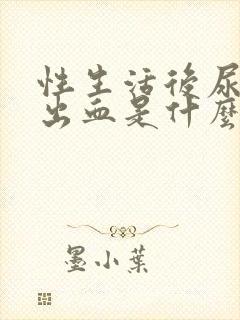 性生活後尿
出血是什麼
墨小葉